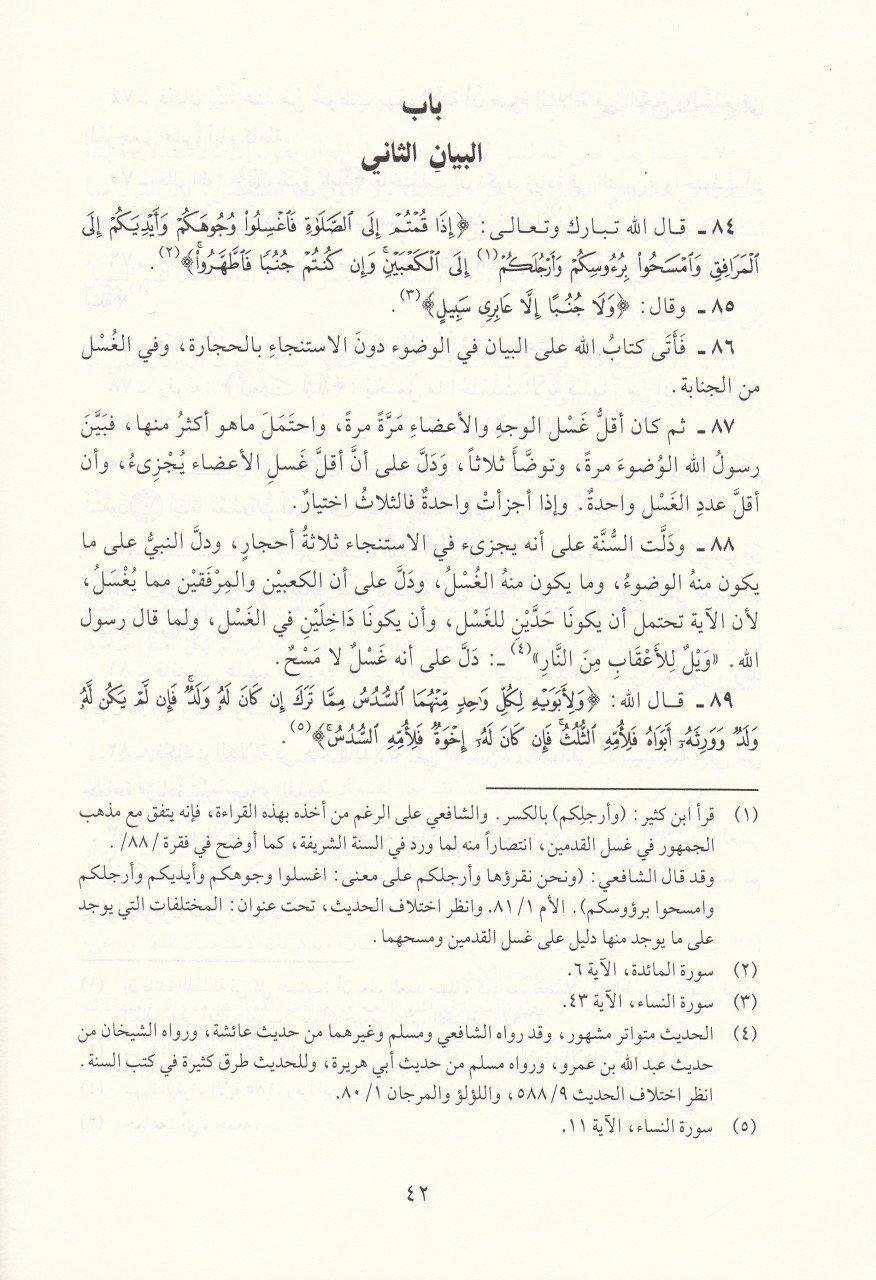 باب
البيانِ الثاني
٨٤ ـ قال الله تبارك وتعالى: ﴿إِذَا قُمْتُمْ إِلَى الصَّلَوٰةِ فَاغْسِلُوا۟ وُجُوهَكُمْ وَأَيْدِيَكُمْ إِلَى
الْمَرَافِقِ وَامْسَحُوا۟ بِرُءُوسِكُمْ وَأَرْجُلَكُمْ(١) إِلَى الْكَعْبَيْنِ وَإِن كُنتُمْ جُنُبًا فَاطَّهَّرُوا۟﴾(٢).
٨٥ ـ وقال: ﴿وَلَا جُنُبًا إِلَّا عَابِرِى سَبِيلٍ﴾(٣).
٨٦ ـ فَأَتَى كتابُ الله على البيان في الوضوء دونَ الاستنجاءِ بالحجارة، وفي الغُسْل
من الجنابة.
٨٧ ـ ثم كان أقلُّ غَسْل الوجهِ والأعضاءِ مَرَّةً مرةً، واحتَمَلَ ماهو أكثرُ منها، فبَيَّنَ
رسولُ الله الوُضوءَ مرةً، وتوضَّأَ ثلاثاً، وَدَلَّ على أنَّ أقلَّ غَسلِ الأعضاء يُجْزِىءُ، وأن
أقلَّ عددِ الغَسْل واحدةٌ. وإذا أجزأتْ واحدةٌ فالثلاثُ اختيارٌ.
٨٨ ـ ودَلَّت السُّنَّة على أنه يجزىء في الاستنجاء ثلاثةُ أحجارٍ، ودلَّ النبيُّ على ما
يكون منهُ الوضوءُ، وما يكون منهُ الغُسْلُ، وَدَلَّ على أن الكعبيْن والمِرْفَقيْن مما يُغْسَلُ،
لأن الآية تحتمل أن يكونَا حَدَّيْنِ للغَسْل، وأن يكونَا دَاخِلَيْنِ في الغَسْل، ولما قال رسول
الله. «وَيْلٌ لِلأَعْقَابِ مِنَ النَّارِ»(٤) ـ: دَلَّ على أنه غَسْلٌ لا مَسْحٌ.
٨٩ ـ قال الله: ﴿وَلِأَبَوَيْهِ لِكُلِّ وَٰحِدٍ مِّنْهُمَا السُّدُسُ مِمَّا تَرَكَ إِن كَانَ لَهُۥ وَلَدٌ فَإِن لَّمْ يَكُن لَّهُۥ
وَلَدٌ وَوَرِثَهُۥٓ أَبَوَاهُ فَلِأُمِّهِ الثُّلُثُ فَإِن كَانَ لَهُۥٓ إِخْوَةٌ فَلِأُمِّهِ السُّدُسُ﴾(٥).
(١) قرأ ابن كثير: (وأرجلِكم) بالكسر. والشافعي على الرغم من أخذه بهذه القراءة، فإنه يتفق مع مذهب
الجمهور في غسل القدمين، انتصاراً منه لما ورد في السنة الشريفة، كما أوضح في فقرة /٨٨/ .
وقد قال الشافعي: (ونحن نقرؤها وأرجلكم على معنى: اغسلوا وجوهكم وأيديكم وأرجلكم
وامسحوا برؤوسكم). الأم ٨١/١. وانظر اختلاف الحديث، تحت عنوان: المختلفات التي يوجد
على ما يوجد منها دليل على غسل القدمين ومسحهما.
(٢) سورة المائدة، الآية ٦.
(٣) سورة النساء، الآية ٤٣.
(٤) الحديث متواتر مشهور، وقد رواه الشافعي ومسلم وغيرهما من حديث عائشة، ورواه الشيخان من
حديث عبد الله بن عمرو، ورواه مسلم من حديث أبي هريرة، وللحديث طرق كثيرة في كتب السنة.
انظر اختلاف الحديث ٥٨٨/٩، واللؤلؤ والمرجان ٨٠/١.
(٥) سورة النساء، الآية ١١.
٤٢